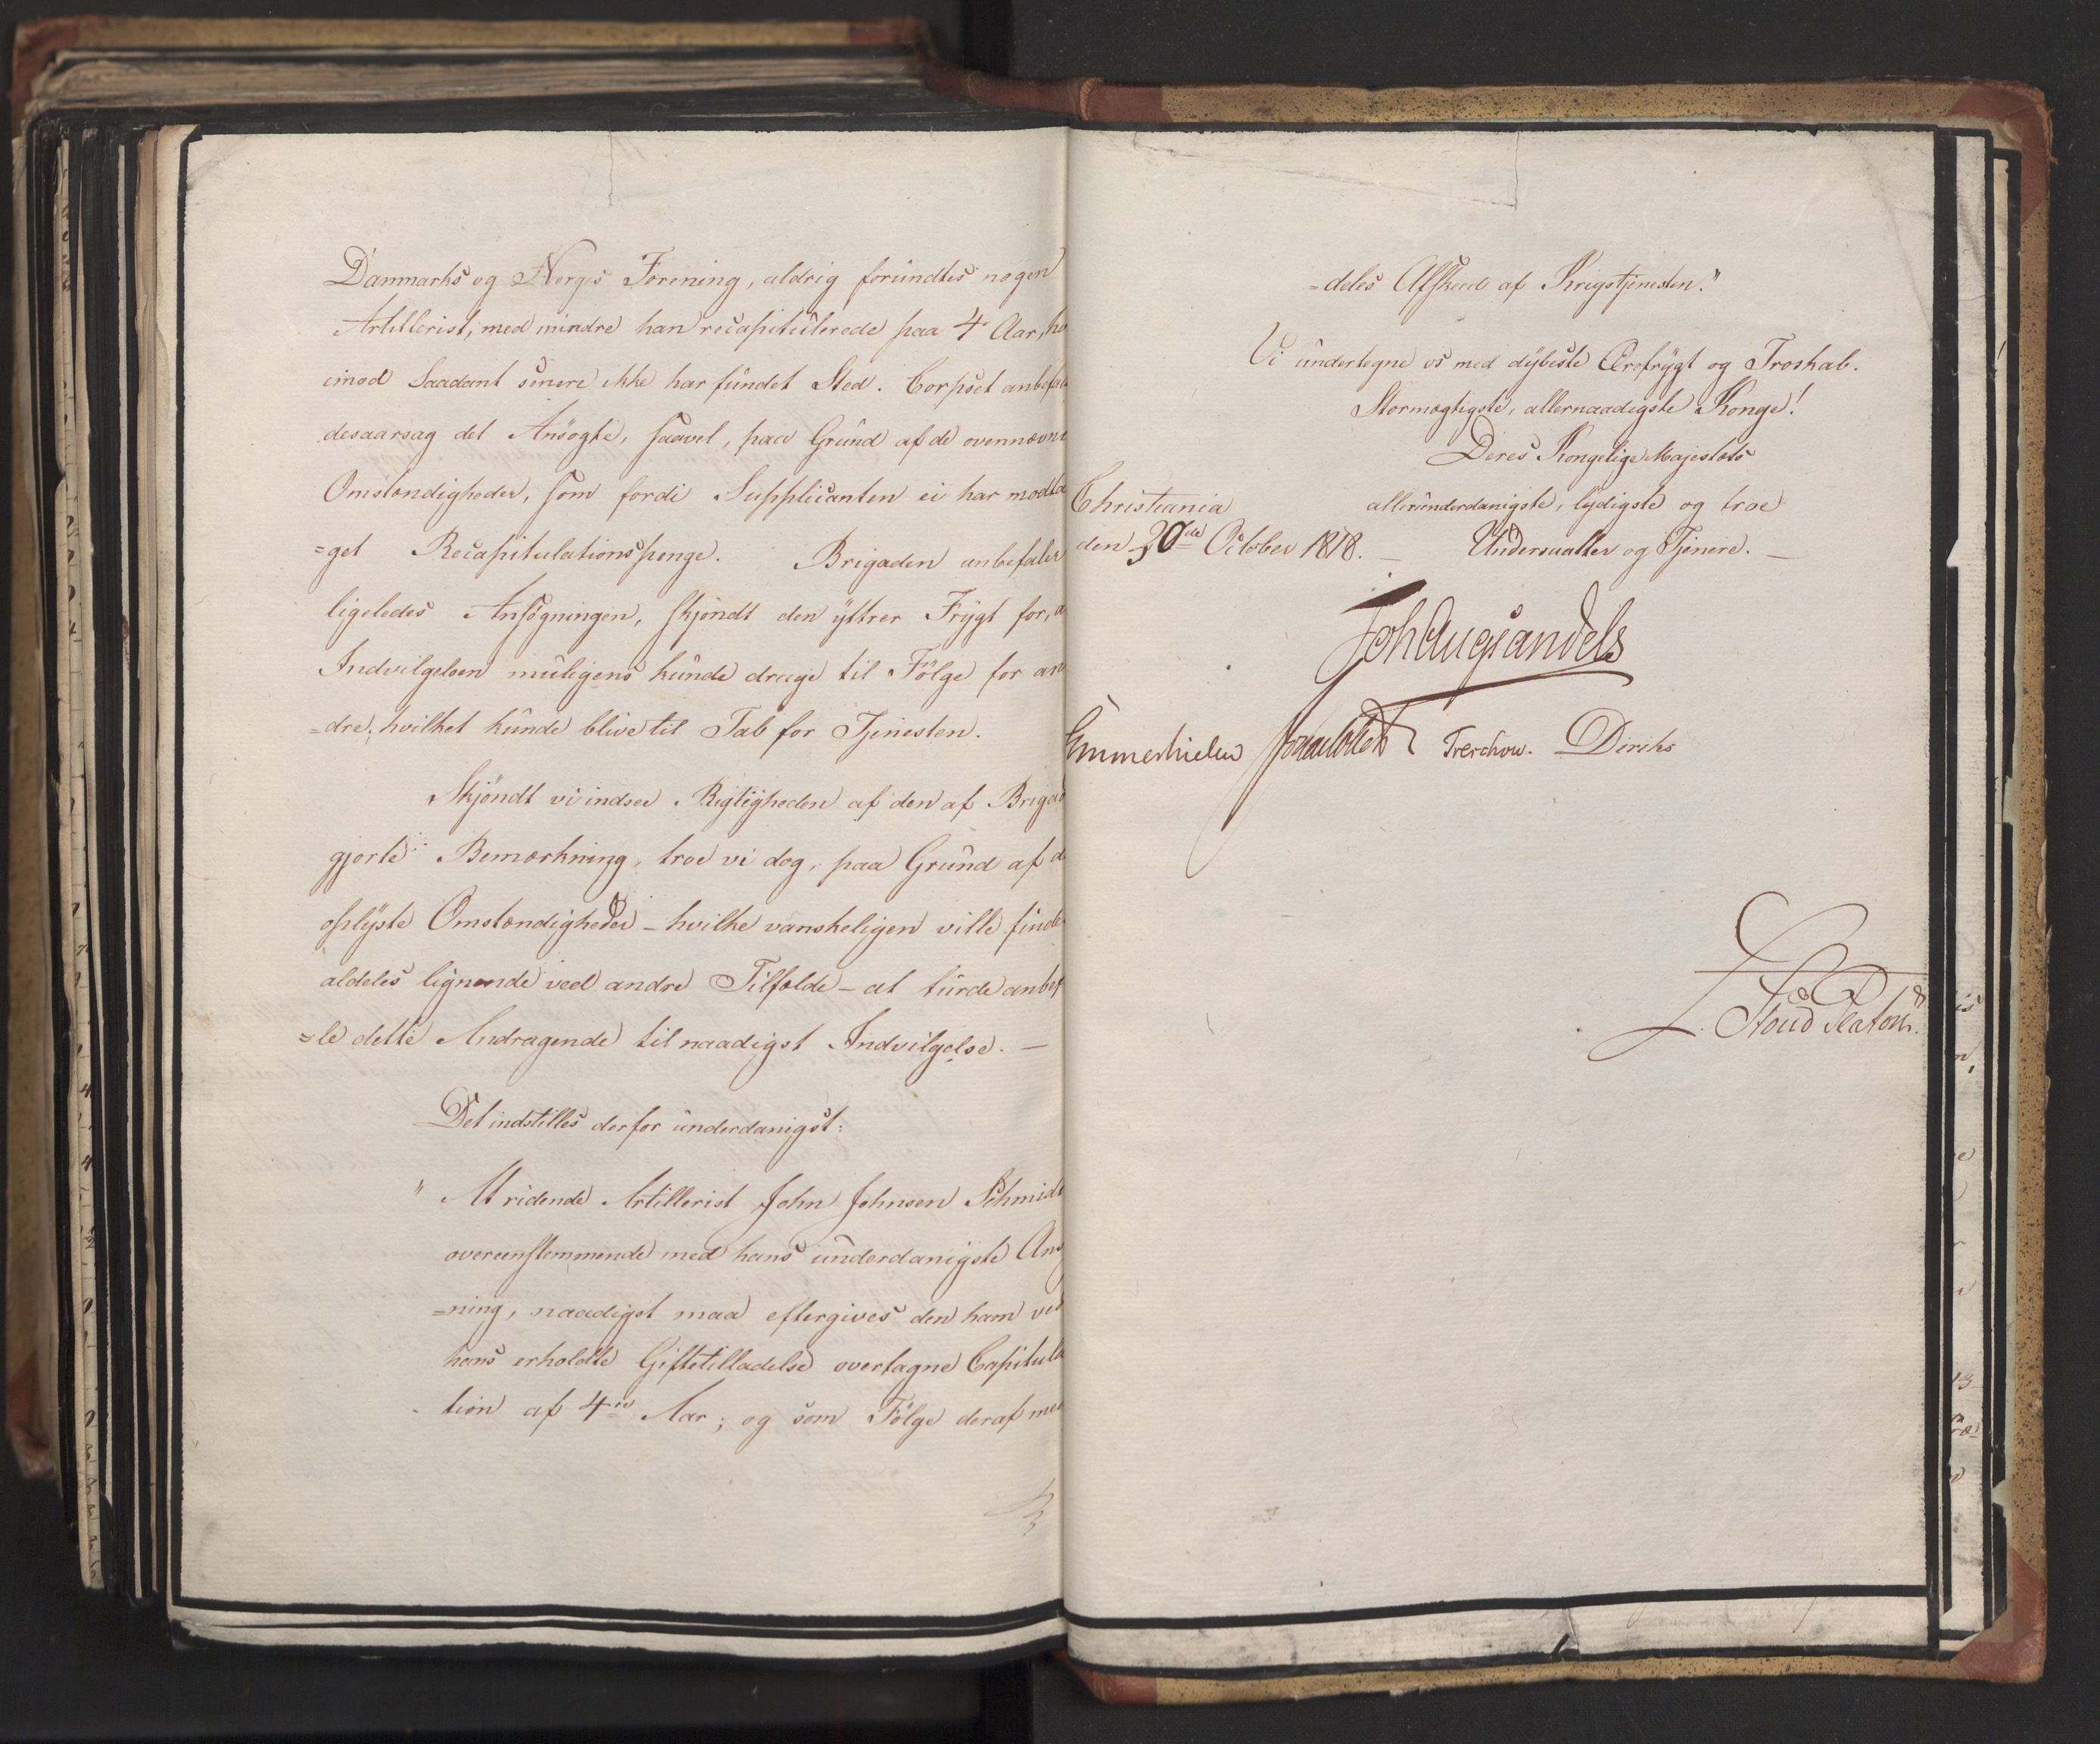 Danmarks og Norges Forening, aldrig forundtes nogen
Artillerist, med mindre han recapitulerede paa 4 Aar, hv
imod Saadant senere ikke har fundet Sted. Corpset anbefal
desaarsag det Ansøgte, saavel, paa Grund af de ovennævnt
Omstændigheder, som fordi Supplicanten ei har modta
=get Recapitulationspenge. Brigaden anbefaler
ligeledes Ansøgningen, skjøndt den yttrer Frygt for, a
Indvilgelsen muligens kunde drage til Følge for an
=dre, hvilket kunde blive til Tab for Tjenesten.
Skjøndt vi indsee Rigtigheden af den af Brigad
gjorte Bemærkning, troe vi dog, paa Grund af d
oplyste Omstændigheder - hvilke vanskeligen ville finde
aldeles lignende ved andre Tilfælde - at turde anbef
=le dette Andragende til naadigst Indvilgelse. —
Det indstilles derfor underdanigst:
" At ridende Artillerist John Johnsen Schmidt
overeenstemmende med hans underdanigste Ans
=ning, naadigst maa eftergives den ham ved
hans erholdte Giftetilladelse overtagne Capitula
tion af 4re Aar; og som Følge deraf med
=deles Afskeed af Krigstjenesten."
Vi undertegne os med dybeste Ærefrygt og Troskab.
Stormægtigste, allernaadigste Konge!
Deres Kongelige Majestæts
Christiania allerunderdanigste, lydigste og troe
den 20de October 1818. — Undersaatter og Tjenere. —
Joh Aug Sandels
Sommerhielm Treschow. Diriks